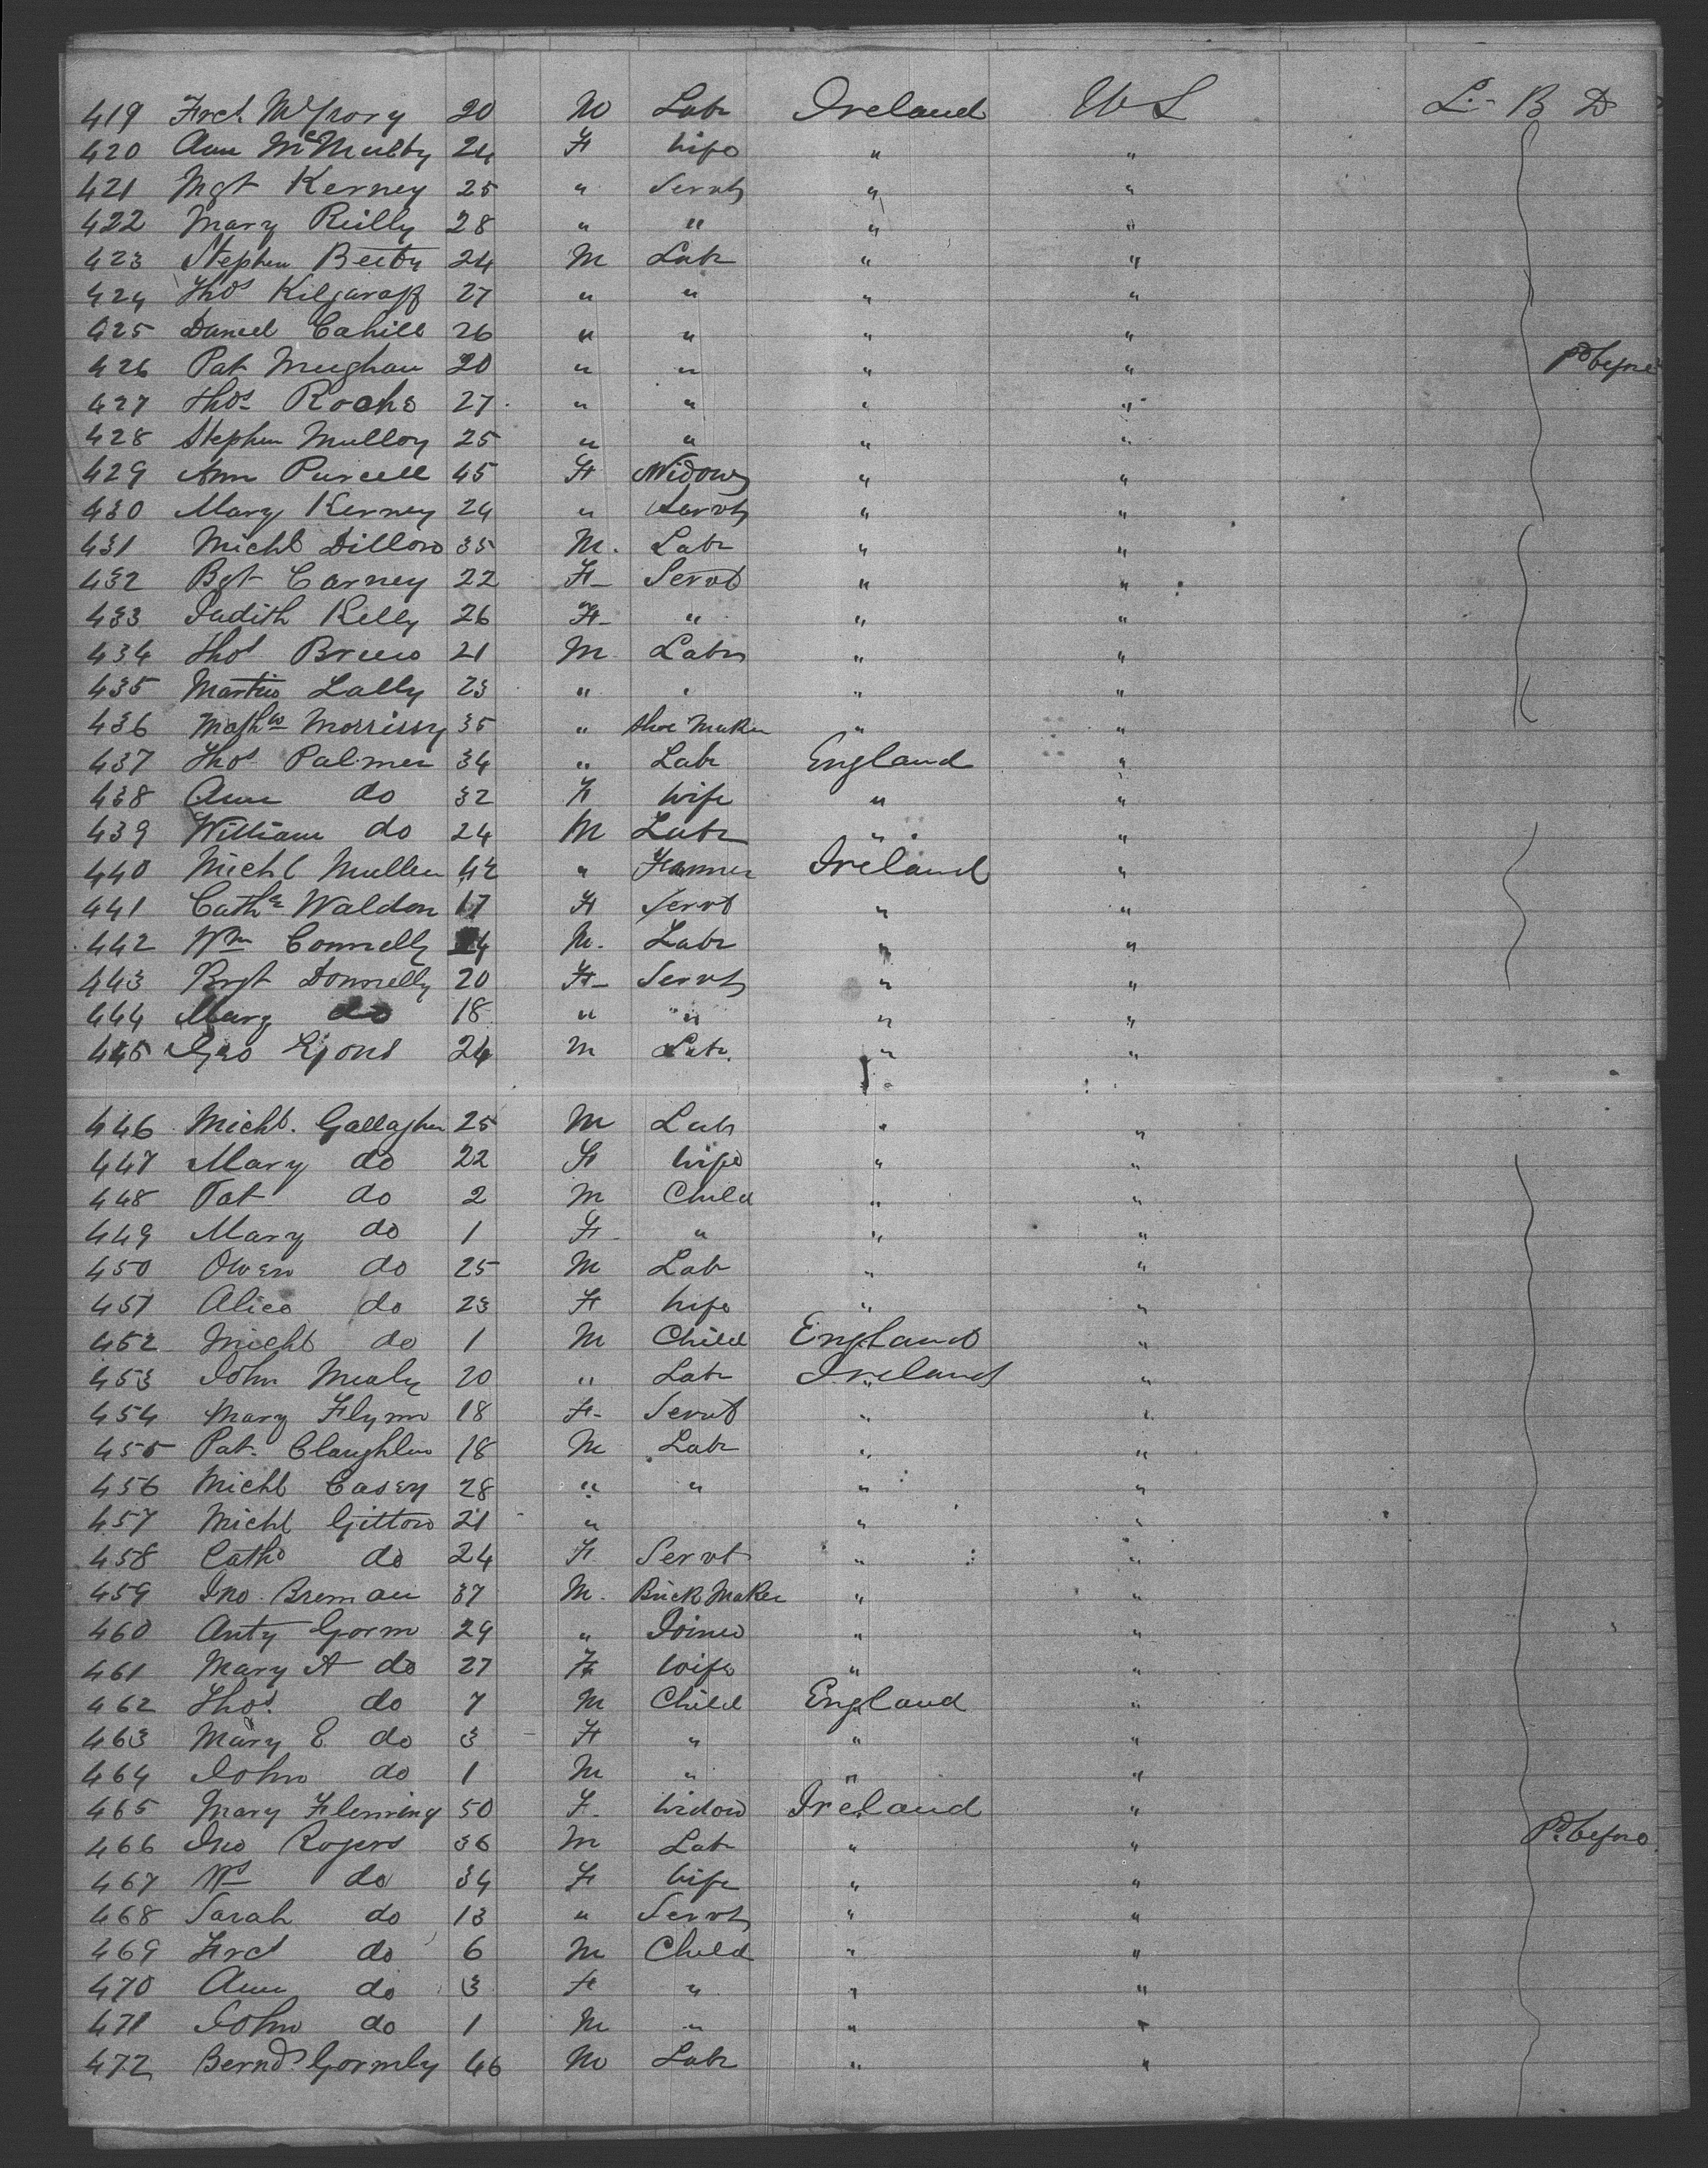 419 Frcs McGrory 20 M Labr Ireland US L. B D
420 Ann McNulty 24 F Wife " "
421 Mgt Kerney 25 " Servt " "
422 Mary Reilly 28 " " " "
423 Stephen 24 M Labr " "
424 Thos Kilgaraff 27 " " " "
425 Daniel Cahill 26 " " " "
426 Pat Meeghan 20 " " " " Pd before
427 Thos Roche 27 " " " "
428 Stephen Mulloy 25 " " " "
429 Ann Purcell 45 F Widow " "
430 Mary Kerney 24 " Servt " "
431 Michl Dillon 35 M. Labr " "
432 Bgt Carney 22 F Servt " "
433 Judith Kelly 26 F " " "
434 Thos 21 M Labr " "
435 Martin Lally 23 " " " "
436 Mathw Morrissy 35 " Shoe Maker " "
437 Thos Palmer 34 " Labr England "
438 Ann do 32 F Wife " "
439 William do 24 M Labr " "
440 Michl Mullen 42 " Farmer Ireland "
441 Cathe Waldon 17 F Servt " "
442 Wm Connelly M. Labr " "
443 Brgt Donnelly 20 F Servt " "
444 Mary do 18 " " " "
445 Geo Lyons 24 M Labr. " "
446 Michl. Gallagher 25 M Labr " "
447 Mary do 22 F Wife " "
448 Pat do 2 M Child " "
449 Mary do 1 F " " "
450 Owen do 25 M Labr " "
451 Alice do 23 F Wife " "
452 Michl do 1 M Child England "
453 John Mealy 20 " Labr Ireland "
454 Mary Flynn 18 F Servt " "
455 Pat. Claughlin 18 M Labr " "
456 Michl Casey 28 " " " "
457 Michl Gitton 21 " " "
458 Cath do 24 F Servt " "
459 Jno Brennan 37 M. Brick Maker " "
460 Anty Gorm 29 " Joiner " "
461 Mary A do 27 F Wife " "
462 Thos. do 7 M Child England "
463 Mary E do 3 F " " "
464 John do 1 M " " "
465 Mary Fleming 50 F. Widow Ireland "
466 Jno Rogers 36 M Labr " " Pd before
467 do 34 F Wife " "
468 Sarah do 13 " Servt " "
469 Frcs do 6 M Child " "
470 Ann do 3 F " " "
471 John do 1 M " " "
472 Bernd Gormly 46 M Labr " "